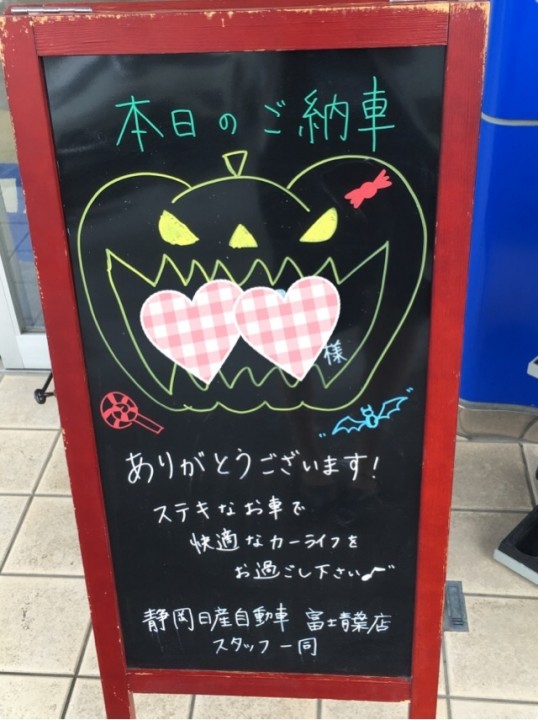 本日のご納車
様
ありがとうございます!
ステキなお車で
快適なカーライフを
お過ごし下さい♪
静岡日産自動車 富士青葉店
スタッフ一同